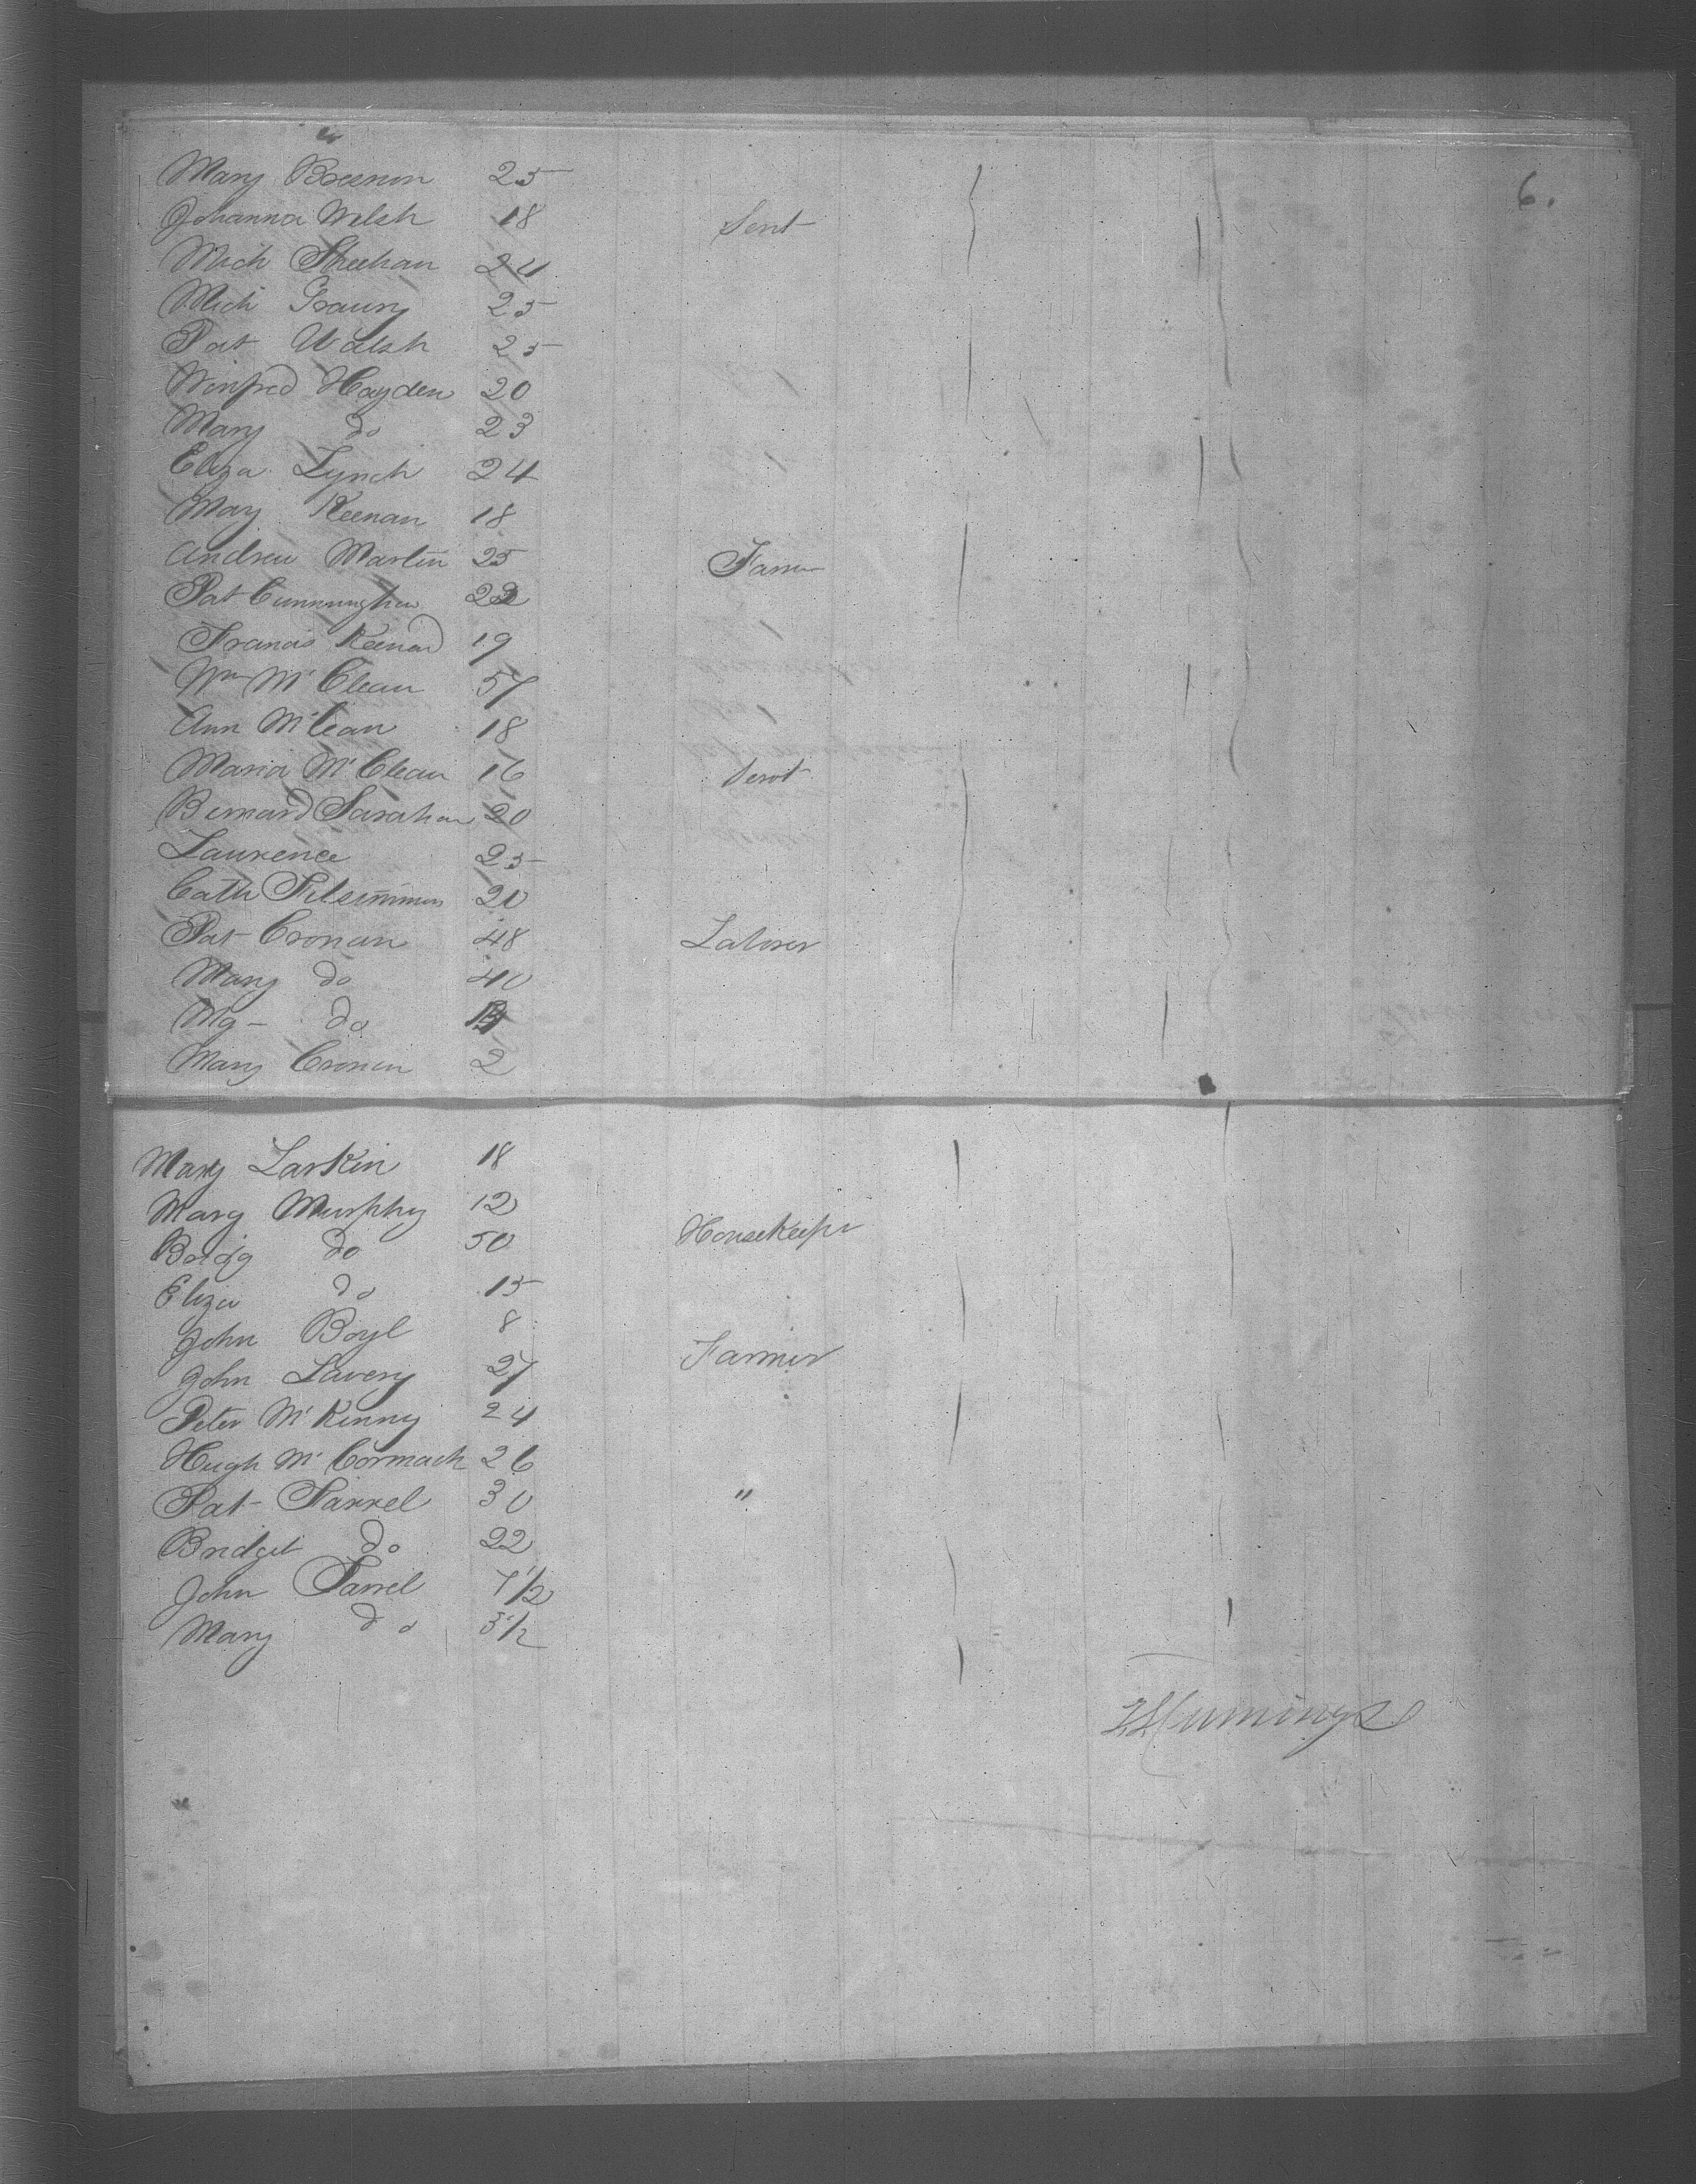 6.
Mary Breenon 25
Johanna Welsh 18 Servt
Mich Sheehan 24
Mich 25
Pat Walsh 25
Winfred Hayden 20
Mary do 23
Eliza Lynch 24
Mary Keenan 18
Andrew Martin 25 Farmer
Pat Cunningham 22
Francis Keenan 19
Wm McClean 57
Ann McLean 18
Maria McClean 16 Servt
Bernard 20
Laurence 25
Cath Fitsimmins 20
Pat Cronan 48 Laborer
Mary do 40
Mg- do
Mary Cronin 2
Mary Larkin 18
Marg Murphy 12
Bridg do 50 Housekeepr
Eliza do 15
John Boyl 8
John Lavery 27 Farmer
Peter McKinny 24
Hugh McCormack 26
Pat Farrel 30 "
Bridget do 22
John Farrel 7 1/2
Mary do 3 1/2